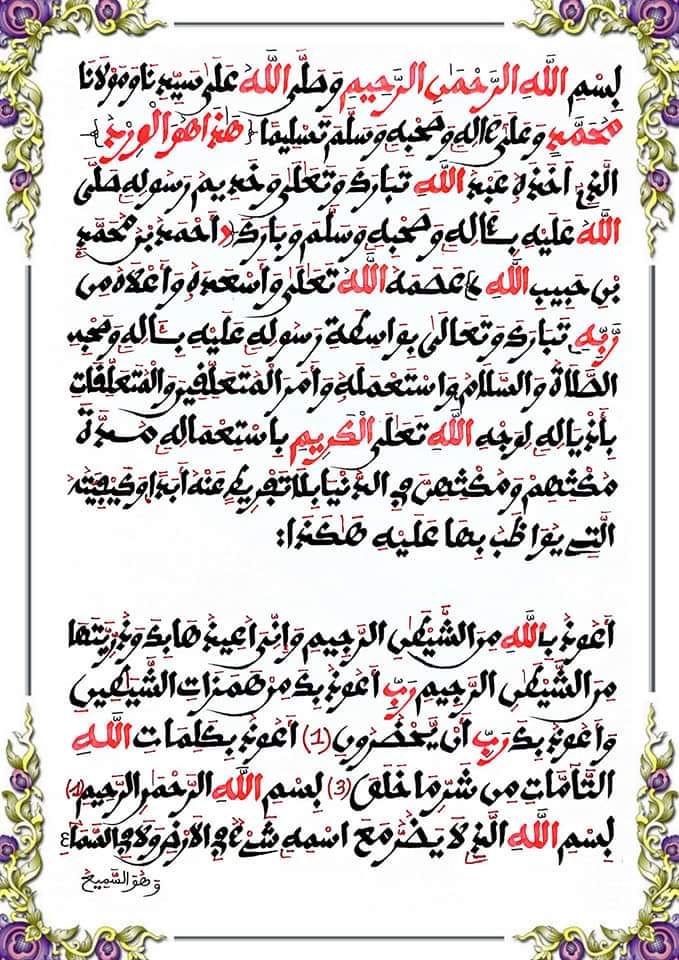 بِسْمِ اللَّهِ الرَّحْمٰنِ الرَّحِيمِ وَصَلَّى اللَّهُ عَلَى سَيِّدِنَا وَمَوْلَانَا
مُحَمَّدٍ وَعَلَى ءَالِهِ وَصَحْبِهِ وَسَلَّمَ تَسْلِيمًا {هَٰذَا هُوَ الْوِرْدُ}
الَّذِي أَخَذَهُ عَبْدُ اللَّهِ تَبَارَكَ وَتَعَلَى وَخَدِيمُ رَسُولِهِ صَلَّى
اللَّهُ عَلَيْهِ بِـَٔالِهِ وَصَحْبِهِ وَسَلَّمَ وَبَارَكَ (أَحْمَدُ بْنُ مُحَمَّدِ
بْنِ حَبِيبِ اللَّهِ) عَصَمَهُ اللَّهُ تَعَلَى وَأَسْعَدَهُ وَأَعْلَاهُ مِن
رَّبِّهِ تَبَارَكَ وَتَعَالَى بِوَاسِطَةِ رَسُولِهِ عَلَيْهِ بِـَٔالِهِ وَصَحْبِهِ
الصَّلَاةُ وَالسَّلَامُ وَاسْتَعْمَلَهُ وَأَمَرَ الْمُتَعَلِّقِينَ وَالْمُتَعَلِّقَاتِ
بِأَذْيَالِهِ لِوَجْهِ اللَّهِ تَعَلَى الْكَرِيمِ بِاسْتِعْمَالِهِ مُدَّةَ
مُكْثِهِمْ وَمُكْثِهِنَّ فِي الدُّنْيَا بِلَا تَفْرِيطٍ عَنْهُ أَبَدًا وَكَيْفِيَّتُهُ
الَّتِي يُوَاظَبُ بِهَا عَلَيْهِ هَٰكَذَا:
أَعُوذُ بِاللَّهِ مِنَ الشَّيْطَٰنِ الرَّجِيمِ وَإِنِّي أُعِيذُهَا بِكَ وَذُرِّيَّتَهَا
مِنَ الشَّيْطَٰنِ الرَّجِيمِ رَبِّ أَعُوذُ بِكَ مِنْ هَمَزَاتِ الشَّيَٰطِينِ
وَأَعُوذُ بِكَ رَبِّ أَنْ يَّحْضُرُونِ (1) أَعُوذُ بِكَلِمَاتِ اللَّهِ
التَّآمَّاتِ مِن شَرِّ مَا خَلَقَ (3) بِسْمِ اللَّهِ الرَّحْمٰنِ الرَّحِيمِ (1)
بِسْمِ اللَّهِ الَّذِي لَا يَضُرُّ مَعَ اسْمِهِ شَيْءٌ فِي الْأَرْضِ وَلَا فِي السَّمَآءِ
وَهُوَ السَّمِيعُ